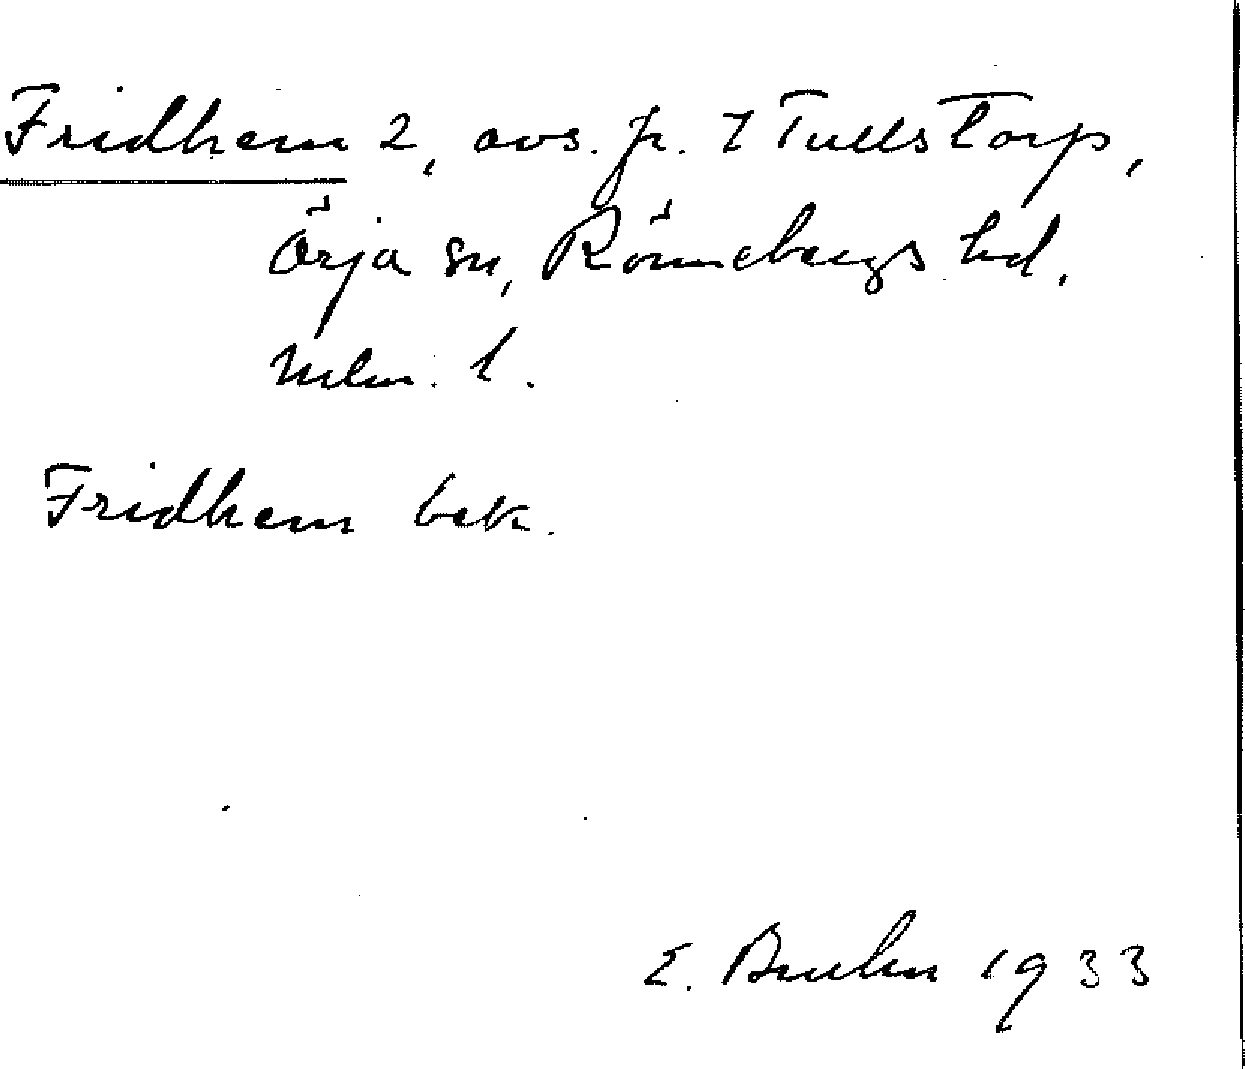 Fridhem 2, avs. fr. 7 Tullstorp,
Örja sn, Rönnebergs hd.
Mlm. l.
Fridhem bek.
E. Bruhn 1933